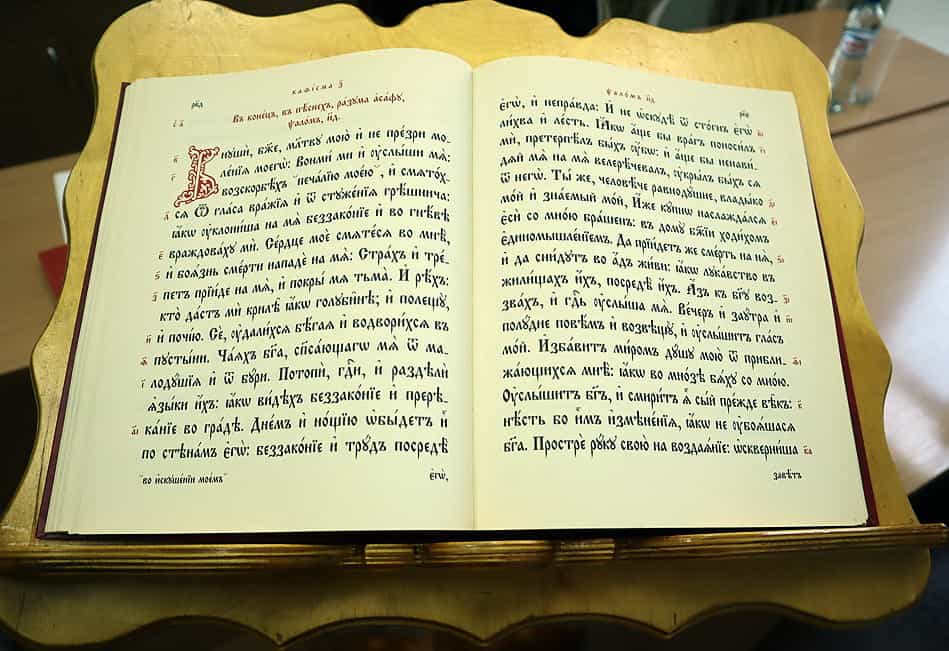 каѳісма з҃
рн҃д
Въ коне́цъ, въ пѣ́снехъ, ра́зума а́сафу,
ѱало́мъ, н҃д.
Внꙋшѝ, бж҃е, мл҃тву мою̀ и҆ не пре́зри мо-
ле́нїѧ моегѡ̀: Вонми́ ми и҆ ѹ҆слы́ши мѧ̀:
возскорбѣ́хъ "печа́лїю мое́ю", и҆ смѧто́х-
сѧ Ѿ гла́са вра́жїѧ и҆ Ѿ стꙋже́нїѧ грѣ́шнича:
ꙗ҆́кѡ ѹ҆клони́ша на мѧ̀ беззако́нїе и҆ во гнѣ́вѣ
враждова́хꙋ мѝ. Се́рдце моѐ смѧте́сѧ во мнѣ̀,
и҆ боѧ́знь сме́рти нападѐ на мѧ̀: Стра́хъ и҆ тре́-
петъ прїи́де на мѧ̀, и҆ покры́ мѧ тьма̀. И҆ рѣ́хъ:
кто̀ да́стъ мѝ крилѣ̀ ꙗ҆́кѡ голꙋби́нѣ; и҆ полещꙋ̀,
и҆ почі́ю. Сѐ, ѹ҆дали́хсѧ бѣ́гаѧ и҆ водвори́хсѧ въ
пꙋсты́ни. Ча́ѧхъ бг҃а, сп҃са́ющагѡ мѧ̀ Ѿ ма-
лодꙋ́шїѧ и҆ Ѿ бꙋ́ри. Потопѝ, гдⷭ҇и, и҆ раздѣлѝ
ѧ҆зы́ки и҆́хъ: ꙗ҆́кѡ ви́дѣхъ беззако́нїе и҆ прерѣ-
ка́нїе во гра́дѣ. Дне́мъ и҆ но́щїю ѡ҆бы́детъ и҆̀
по стѣна́мъ є҆гѡ̀: беззако́нїе и҆ трꙋ́дъ посредѣ̀
"во и҆скꙋше́нїи мое́мъ"
є҆гѡ̀,
ѱало́мъ н҃д.
рн҃є
є҆гѡ̀, и҆ непра́вда: И҆ не ѡ҆скꙋдѣ̀ Ѿ сто́гнъ є҆гѡ̀
ли́хва и҆ ле́сть. Ꙗ҆́кѡ а҆́ще бы вра́гъ поноси́лъ
мѝ, претерпѣ́лъ бы́хъ ѹ҆́бѡ: и҆ а҆́ще бы ненави́-
дѧй мѧ̀ на мѧ̀ велерѣ́чевалъ, ѹ҆кры́лъ бы́хъ сѧ
Ѿ негѡ̀. Ты́ же, человѣ́че равнодꙋ́шне, влады́ко
мо́й и҆ зна́емый мо́й, И҆́же кꙋ́пнѡ наслажда́лсѧ
є҆сѝ со мно́ю бра́шенъ: въ домꙋ̀ бж҃їи ходи́хомъ
є҆диномышле́нїемъ. Да прїи́детъ же сме́рть на нѧ̀,
и҆ да сни́дꙋтъ во а҆́дъ жи́ви: ꙗ҆́кѡ лꙋка́вство въ
жили́щахъ и҆́хъ, посредѣ̀ и҆́хъ. А҆́зъ къ бг҃ꙋ воз-
зва́хъ, и҆ гдⷭ҇ь ѹ҆слы́ша мѧ̀. Ве́черъ и҆ заꙋ́тра и҆
полꙋ́дне повѣ́мъ и҆ возвѣщꙋ̀, и҆ ѹ҆слы́шитъ гла́съ
мо́й. И҆зба́витъ ми́ромъ дꙋ́шꙋ мою̀ Ѿ прибли-
жа́ющихсѧ мнѣ̀: ꙗ҆́кѡ во мно́зѣ бѧ́хꙋ со мно́ю.
Ѹ҆слы́шитъ бг҃ъ, и҆ смири́тъ ѧ҆̀ сы́й пре́жде вѣ̑къ:
нѣ́сть бо и҆̀мъ и҆змѣне́нїѧ, ꙗ҆́кѡ не ѹ҆боѧ́шасѧ
бг҃а. Прострѐ рꙋ́кꙋ свою̀ на воздаѧ́нїе: ѡ҆скверни́ша
завѣ́тъ